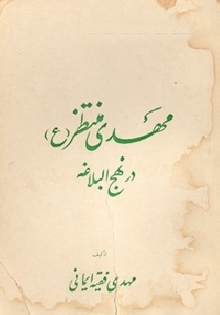 مهدی منتظر (ع)
در نهج البلاغه
تألیف
مهدی فقیه ایمانی